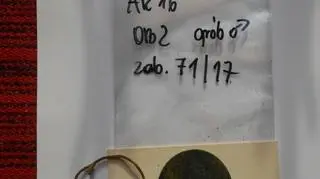 Ar 16
Ob 2 grób ♂
zab. 71/17